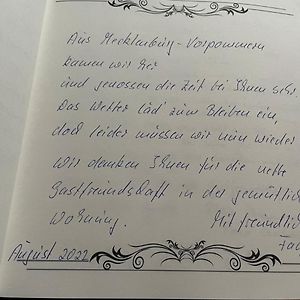 Aus Mecklenburg-Vorpommern
kamen wir her
und genossen die Zeit bei Ihnen sehr.
Das Wetter läd zum Bleiben ein,
doch leider müssen wir nun wieder
Wir danken Ihnen für die nette
Gastfreundschaft in der gemütlich
Wohnung.
Mit freundlich
August 2022